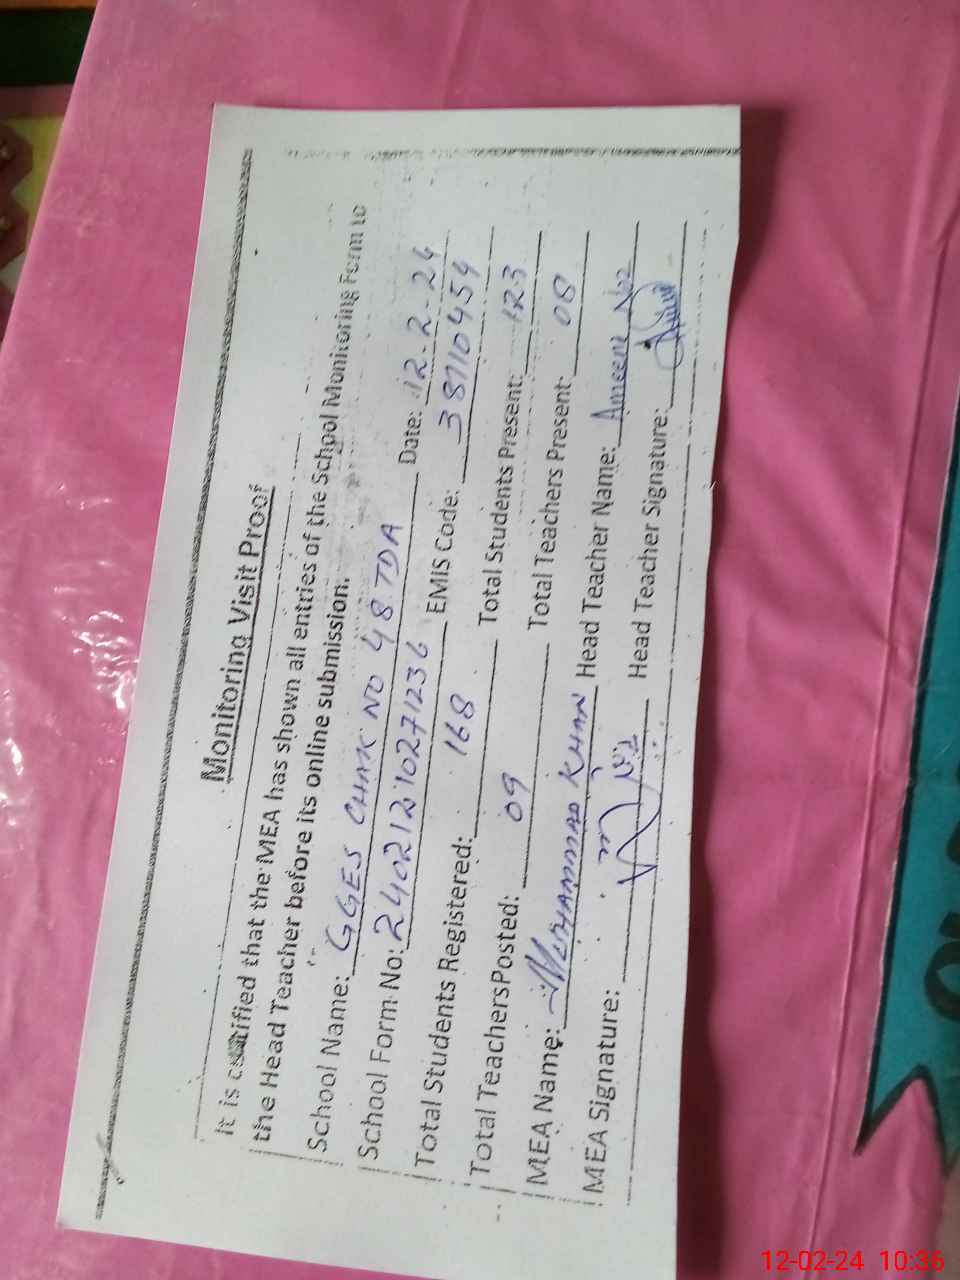 Monitoring Visit Proof
It is certified that the MEA has shown all entries of the School Monitoring Form to
the Head Teacher before its online submission.
School Name: GGES CHAK NO 48 TDA Date: 12-2-24
School Form No: 24021210271236 EMIS Code: 38110454
Total Students Registered: 168 Total Students Present: 123
Total Teachers Posted: 09 Total Teachers Present: 08
MEA Name: MUHAMMAD KHAN Head Teacher Name: Ameena Naz
MEA Signature: Head Teacher Signature:
12-02-24 10:36